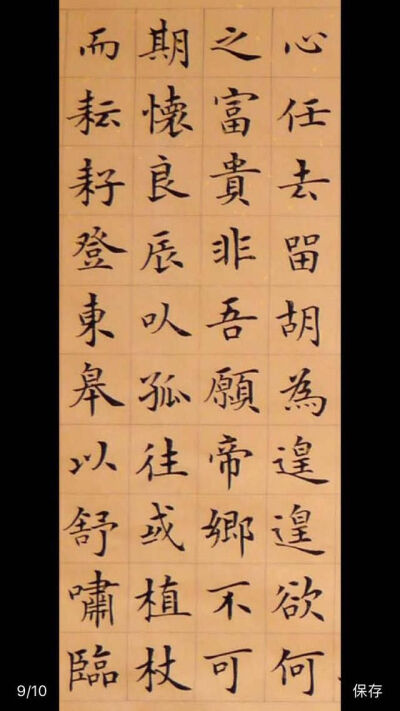 心任去留胡為遑遑欲何
之富貴非吾願帝鄉不可
期懷良辰以孤往或植杖
而耘耔登東皋以舒嘯臨
9/10
保存